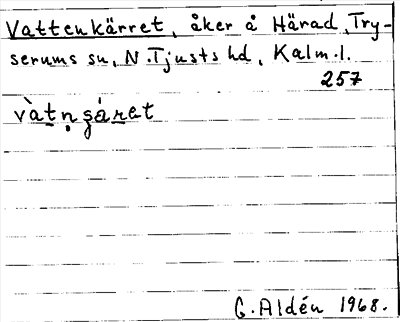 Vattenkärret, åker å Härad, Try-
serums sn, N. Tjusts hd, Kalm. l.
257
và̀tn̥ʂáret
G. Aldén 1968.